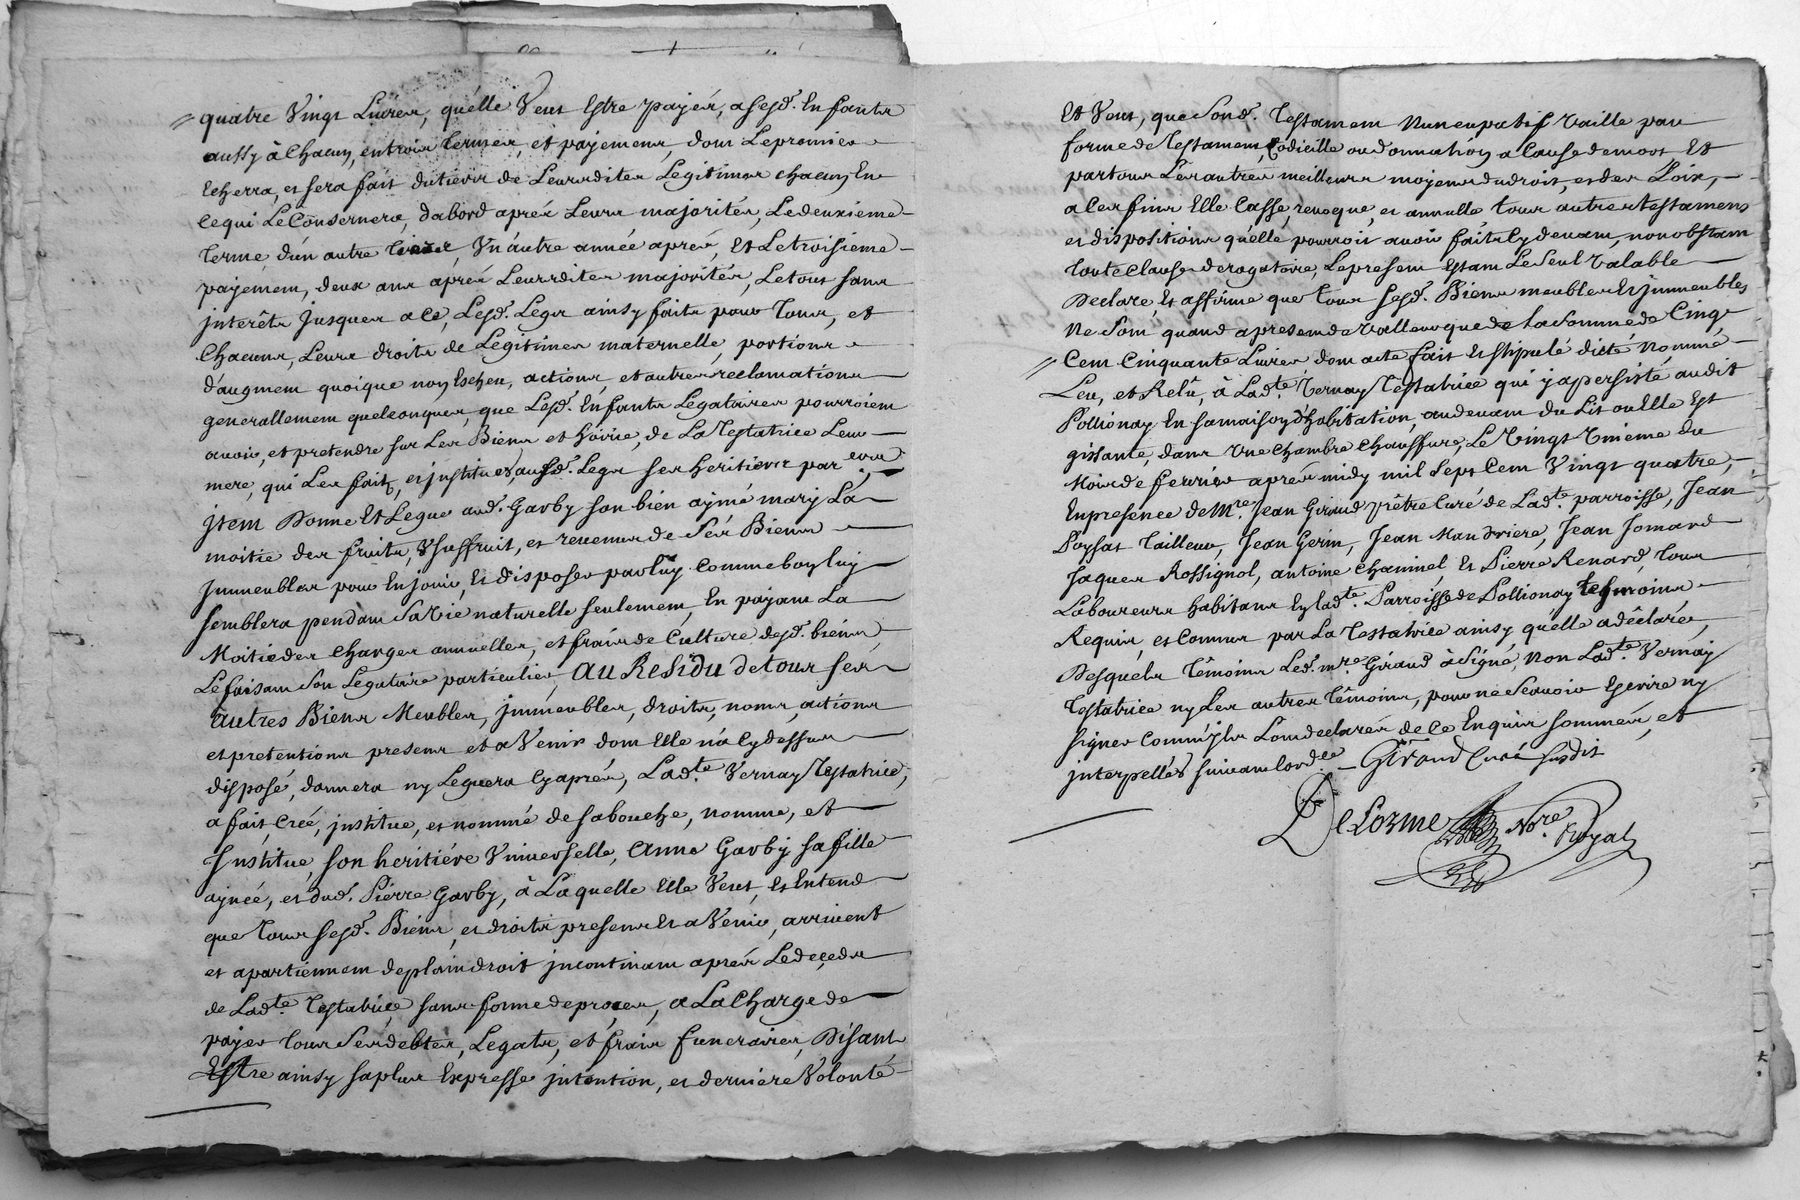 quatre Vingt Livres, qu'elle Veut Estre payés, a sesd. Enfants
aussy à Chacun, en trois termes, et payements, dont Le premier
Echerra, et sera fait du tiers de Leursdites Legitimes chacun En
ce qui Le Consernera, d'abord aprés Leurs majorités, Le deuxieme
terme, d'un autre tiers, Un'autre année aprés, Et Le troisieme
payement, deux ans aprés Leursdites majorités, Le tout sans
interêts jusques a ce, Lesd. Legs ainsy faits pour tous, et
Chacuns, Leurs droits de Legitimes maternelle, portions
d'augment quoique non Escheu, actions, et autres reclamations
generallement quelconques, que Lesd. Enfants Legataires pourroient
avoir, et pretendre sur Les Biens et hoirie, de La Testatrice Leur
mere, qui Les fait, et institue, ausd. Legs ses heritiers par eux
jtem Donne Et Legue aud. Garby son bien aymé mary La
moitié des fruits, Usuffruit, et revenus de Ses Biens
Jmmeubles pour En jouir, Et disposer par luy comme bon luy
semblera pendant Sa Vie naturelle seulement, En payant La
Moitié des charges annuelles, et frais de Culture desd. biens,
Le faisant Son Legataire particulier, Au Residu de tous ses
autres Biens Meubles, jmmeubles, droits, noms, actions
et pretentions presents et a Venir dont Elle n'a Cy dessus
disposé, donnera ny Leguera Cy aprés, Lad.te Vernay Testatrice,
a fait, Creé, jnstitue, et nommé de sa bouche, nomme, et
Jnstitue, son heritiére Universelle, Anne Garby sa fille
aynée, et dud. Pierre Garby, à Laquelle Elle Veut, Et Entend
que tous sesd. Biens, et droits presents Et a Venir, arrivent
et apartiennent de plain droit jncontinant aprés Le deçeds
de Lad.te Testatrice, sans forme de procés, a La Charge de
payer tous Ses debtes, Legats, et frais funeraires, Disant
Estre ainsy sa plus Expresse jntention, et derniere Volonté
Et Veut, que Sond. Testament Nuncupatif Vaille par
forme de Testament, Codicille ou donnation a Cause de mort Et
par tous Les autres meilleurs moyens du droit, et des Loix,
a Ces fins Elle Casse, revoque, et annulle tous autres testaments
et dispositions qu'elle pourroit avoir faits Cy devant, nonobstant
toute Clause derogatoire, Le present Estant Le Seul Valable
Declare, Et affirme que tous sesd. Biens meubles Et jmmeubles
Ne Sont quand a present de Valleur que de La Somme de Cinq
Cent Cinquante Livres dont acte fait Et stipulé dicté Nommé
Leu, et Relû, à Lad.te Vernay Testatrice qui y a persisté audit
Pollionay En sa maison d'habitation, au devant du Lit ou Elle Est
gissante, dans Une Chambre Chauffure, Le Vingt Unieme du
Mois de fevrier aprés midy mil Sept Cent Vingt quatre,
En presence de M.re Jean Giraud Prêtre Curé de Lad.te parroisse, Jean
Poysat Tailleur, Jean Gerin, Jean Mandrière, Jean Jomard
Jaques Rossignol, antoine Chaminel Et Pierre Renard, tous
Laboureurs habitans En lad.te Parroisse de Pollionay tesmoins
Requis, et Connus par La Testatrice ainsy, qu'elle a dêclaré,
Desquels têmoins Led. m.re Giraud à Signé, Non Lad.te Vernay
Testatrice ny Les autres têmoins, pour ne Scavoir Escrire ny
signer Comm'jls L'ont declarés de Ce Enquis sommés, et
jnterpellés suivant L'ord.ce — Giraud Curé Susdit
DeLorme No.re Royal